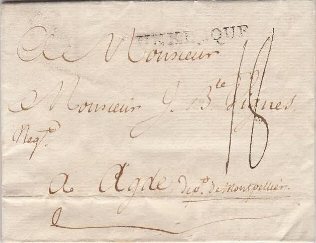 A Monsieur
Monsieur J. B.te Vignes
Neg.t
18
a Agde dep.t de Montpellier